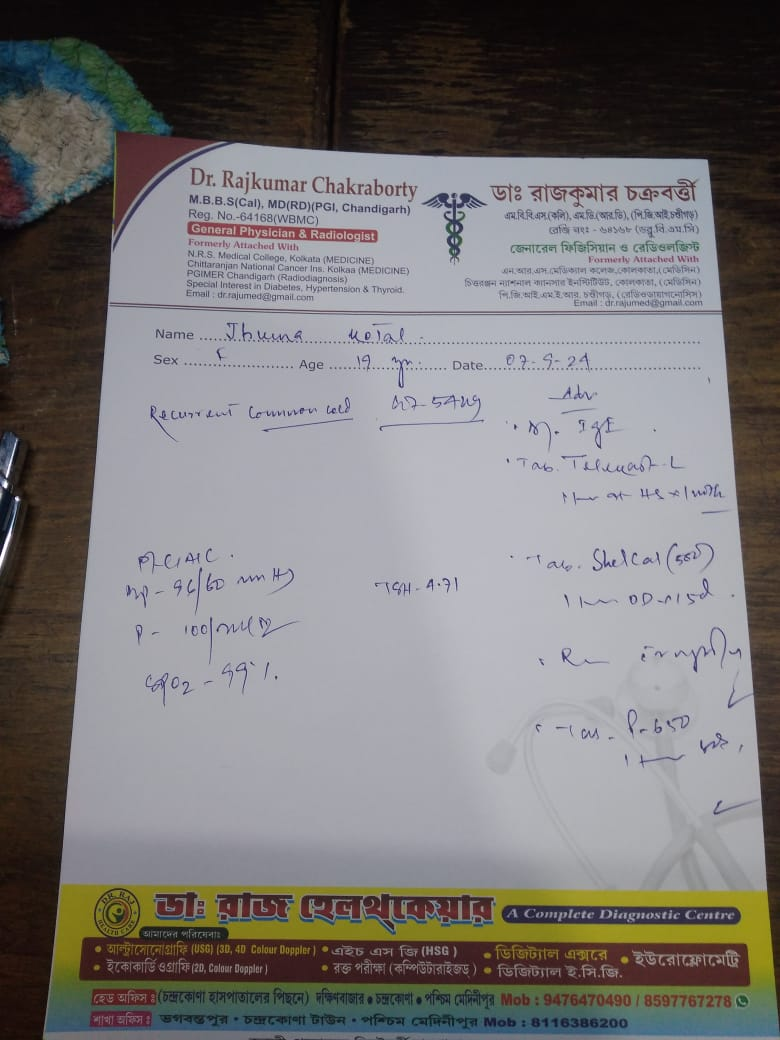 Dr. Rajkumar Chakraborty
M.B.B.S(Cal), MD(RD)(PGI, Chandigarh)
Reg. No.-64168(WBMC)
General Physician & Radiologist
Formerly Attached With
N.R.S. Medical College, Kolkata (MEDICINE)
Chittaranjan National Cancer Ins. Kolkaa (MEDICINE)
PGIMER Chandigarh (Radiodiagnosis)
Special Interest in Diabetes, Hypertension & Thyroid.
Email : dr.rajumed@gmail.com
ডাঃ রাজকুমার চক্রবর্ত্তী
এম.বি.বি.এস.(কলি), এম.ডি.(আর.ডি), (পি.জি.আই,চণ্ডীগড়)
রেজি নংঃ - ৬৪১৬৮ (ডব্লু.বি.এম.সি)
জেনারেল ফিজিসিয়ান ও রেডিওলজিস্ট
Formerly Attached With
এন.আর.এস.মেডিক্যাল কলেজ,কোলকাতা,(মেডিসিন)
চিত্তরঞ্জন ন্যাশনাল ক্যানসার ইনস্টিটিউট, কোলকাতা, (মেডিসিন)
পি.জি.আই.এম.ই.আর. চণ্ডীগড়, (রেডিওডায়াগনোসিস)
Email : dr.rajumed@gmail.com
Name
Sex F Age 19 yr. Date
Recurrent Common cold
Adv
IgE
Tab. Telekast-L
1 HS x 1
BP - 96/60 mmHg
TSH - 4.71
Tab. Shelcal (500)
1 OD x 15d
P - 100/
SpO2 - 99%.
Tab. P-650
1
ডাঃ রাজ হেলথ্কেয়ার
A Complete Diagnostic Centre
DR. RAJ
HEALTH CARE
আমাদের পরিষেবাঃ
• আল্ট্রাসোনোগ্রাফি (USG) (3D, 4D Colour Doppler) • এইচ এস জি (HSG) • ডিজিট্যাল এক্সরে • ইউরোফ্লোমেট্রি
• ইকোকার্ডিওগ্রাফি (2D, Colour Doppler) • রক্ত পরীক্ষা (কম্পিউটারাইজড) • ডিজিট্যাল ই.সি.জি.
হেড অফিস ঃ (চন্দ্রকোণা হাসপাতালের পিছনে) দক্ষিণবাজার • চন্দ্রকোণা • পশ্চিম মেদিনীপুর Mob : 9476470490 / 8597767278
শাখা অফিস ঃ ভগবন্তপুর • চন্দ্রকোণা টাউন • পশ্চিম মেদিনীপুর Mob : 8116386200